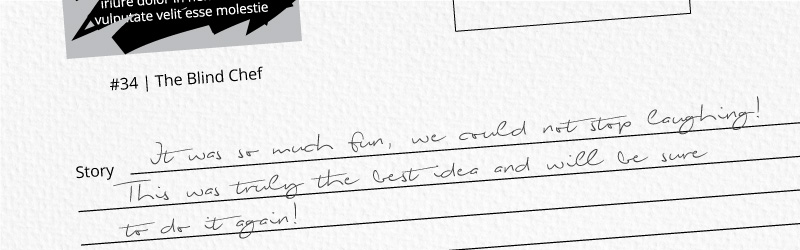 iriure dolor in
vulputate velit esse molestie
#34 | The Blind Chef
Story It was so much fun, we could not stop laughing!
This was truly the best idea and will be sure
to do it again!